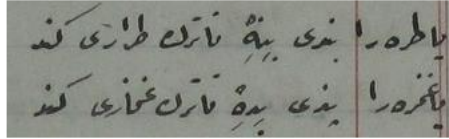 یا طره را بندی بنه تا ترک طراری کند
یا غمزه را پندی بده تا ترک غمازی کند